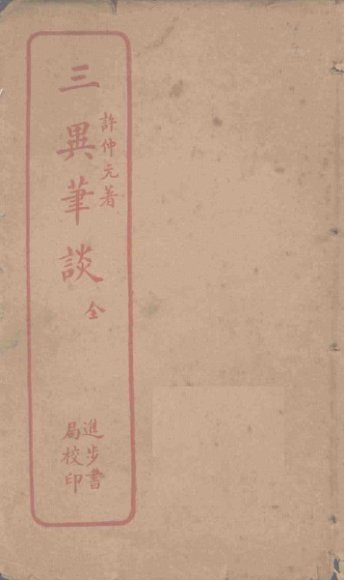 許仲元著
三異筆談
全
進步書
局校印